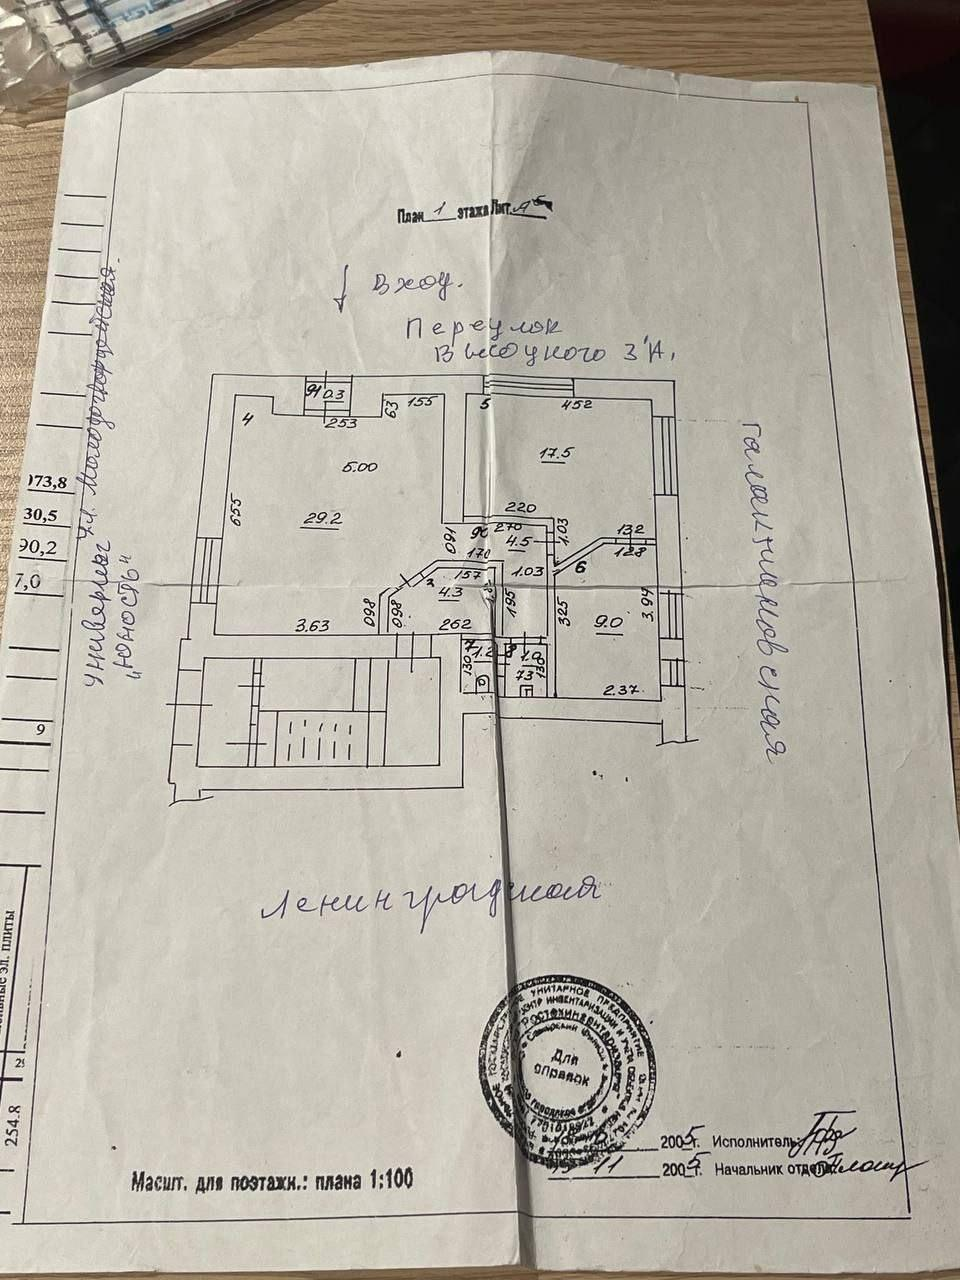 План 1 этажа Лит. А
Вход.
Переулок
Высоцкого 3'А,
универмаг ул. Молодогвардейская.
"Юность"
Галактионовская
073,8
30,5
90,2
7,0
9
ельные эл. плиты
254.8
4
91
0.3
253
63
155
5.00
655
29.2
3.63
5
452
17.5
220
270
90
4.5
1.03
160
170
157
4.3
1.03
195
098
098
262
132
128
6
325
9.0
3.94
2.37
7
1.2
130
8
1.0
73
130
Ленинградская
Для
справок
2005г. Исполнитель:
11 2005г. Начальник отдела:
Масшт. для поэтажн.: плана 1:100